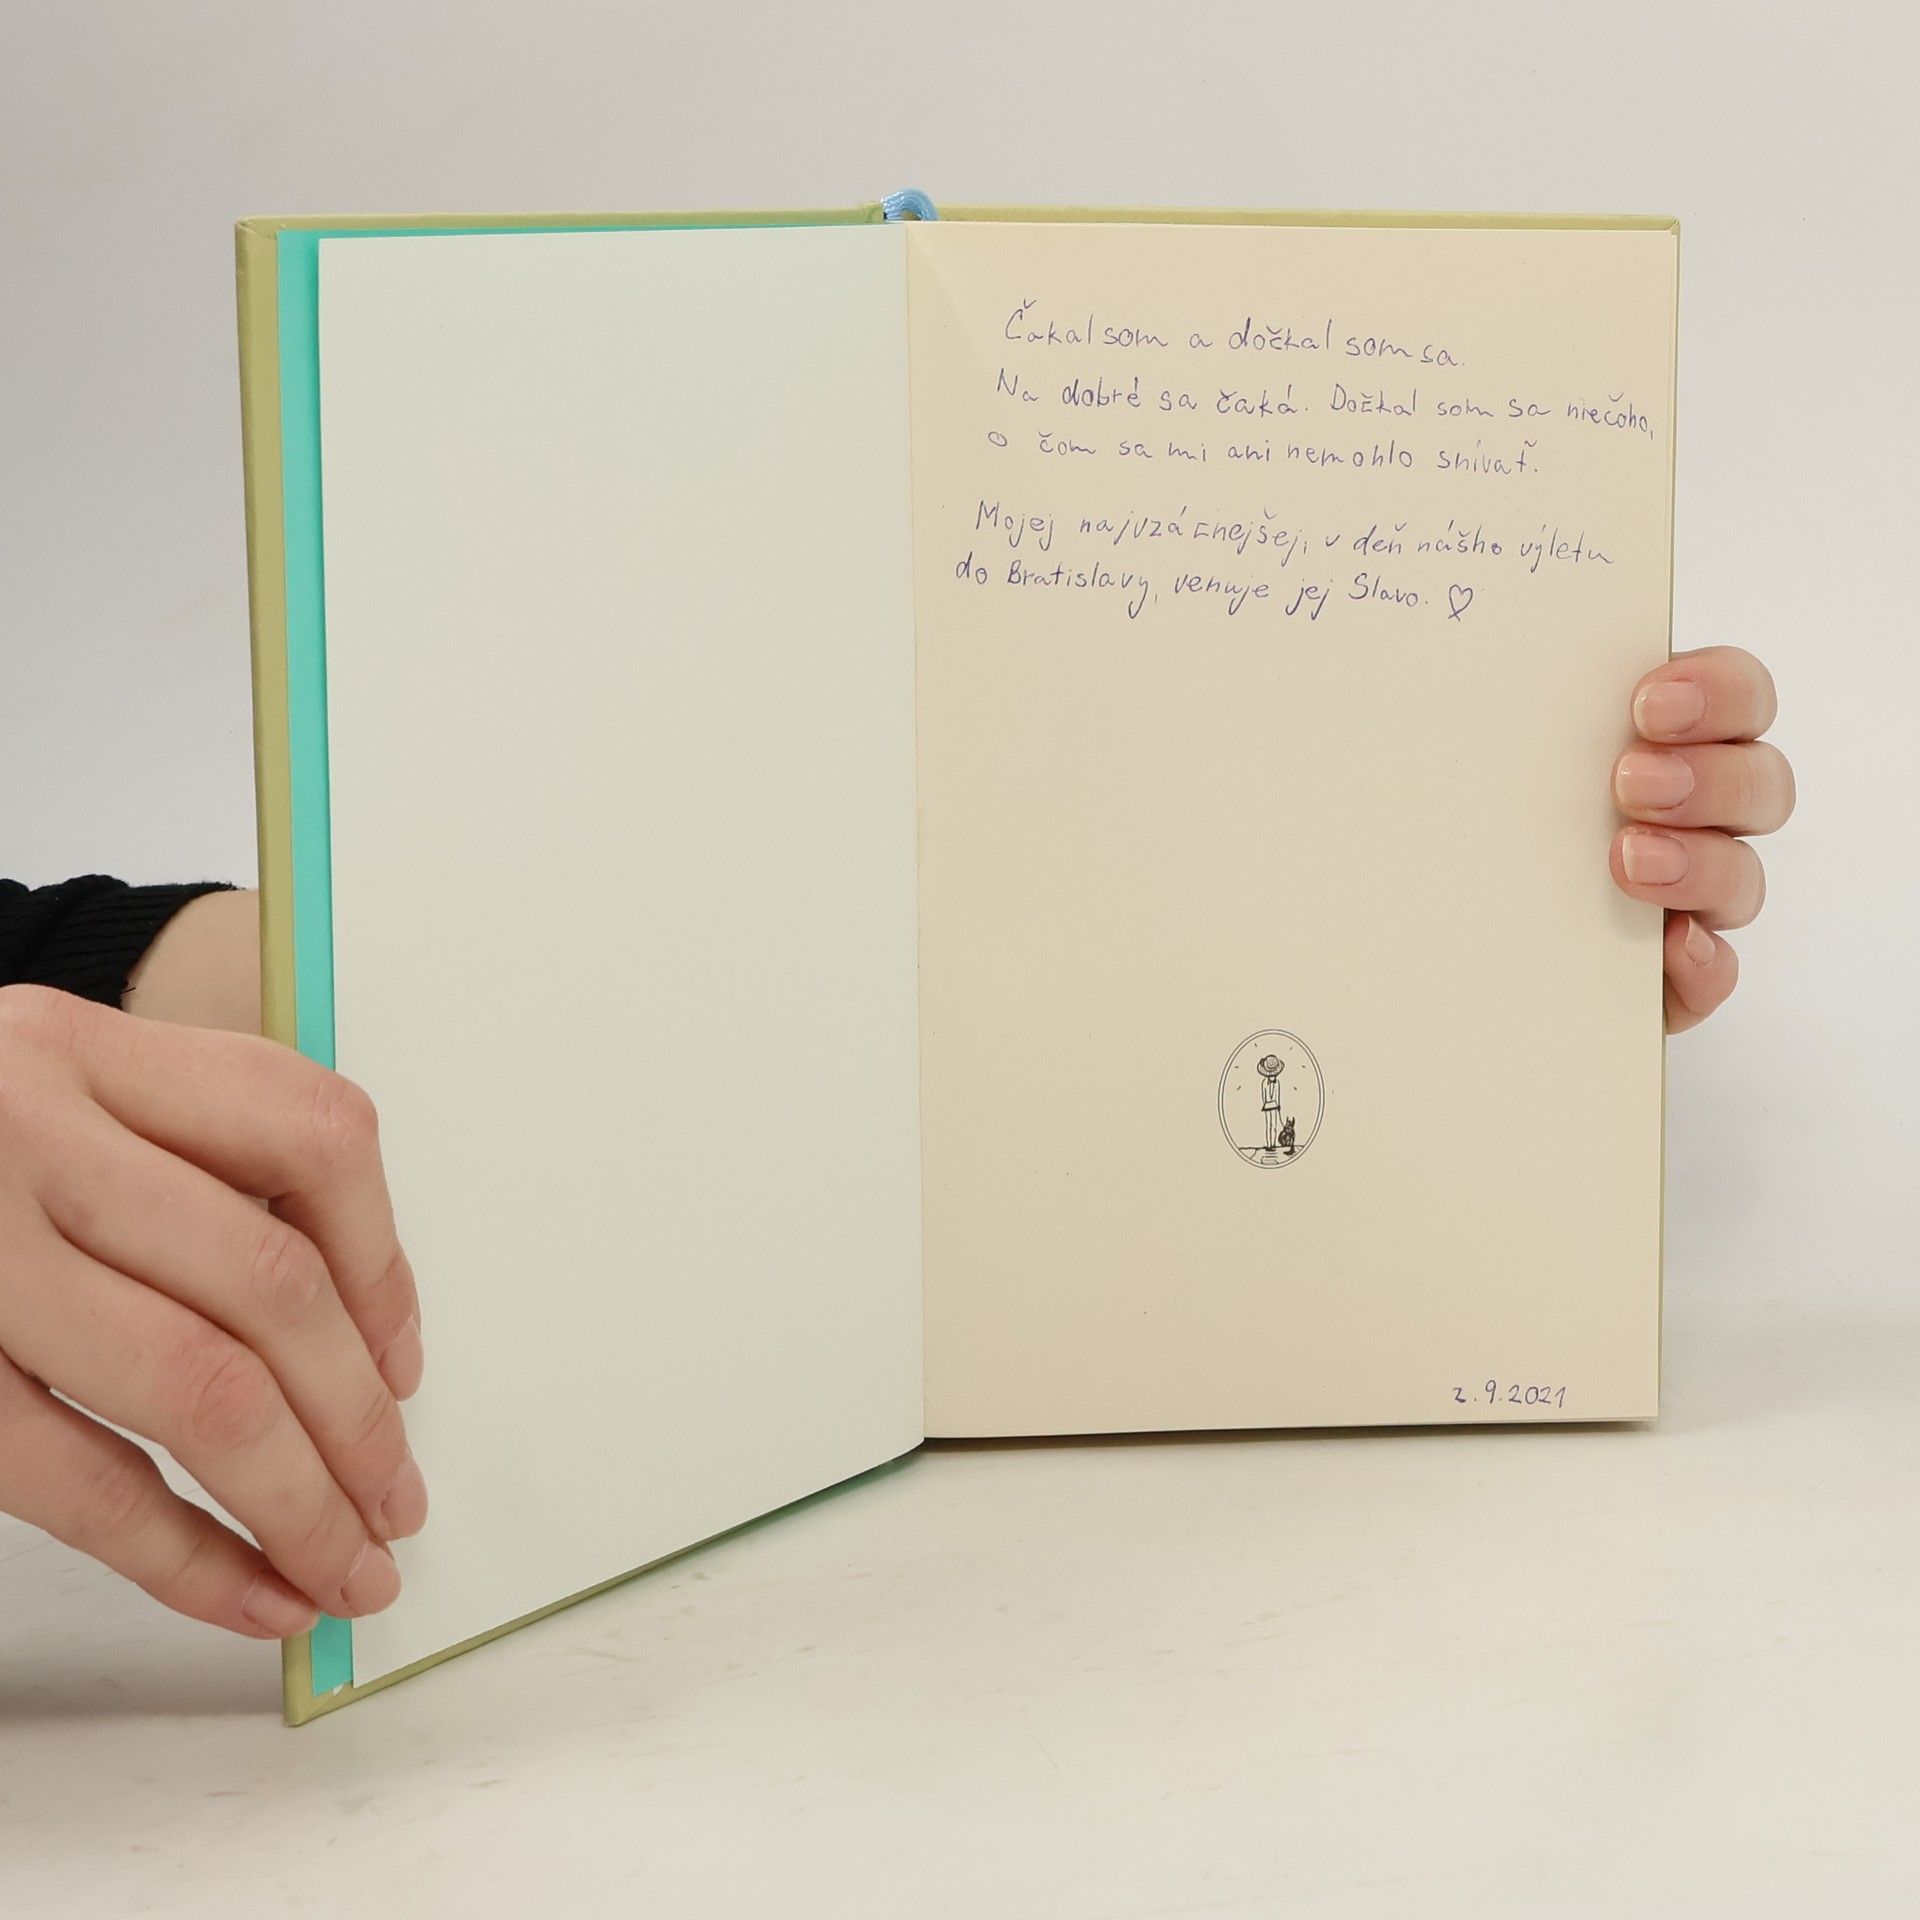 Čakal som a dočkal som sa.
Na dobré sa čaká. Dočkal som sa niečoho,
o čom sa mi ani nemohlo snívať.
Mojej najvzácnejšej, v deň nášho výletu
do Bratislavy, venuje jej Slavo. ♡
2.9.2021